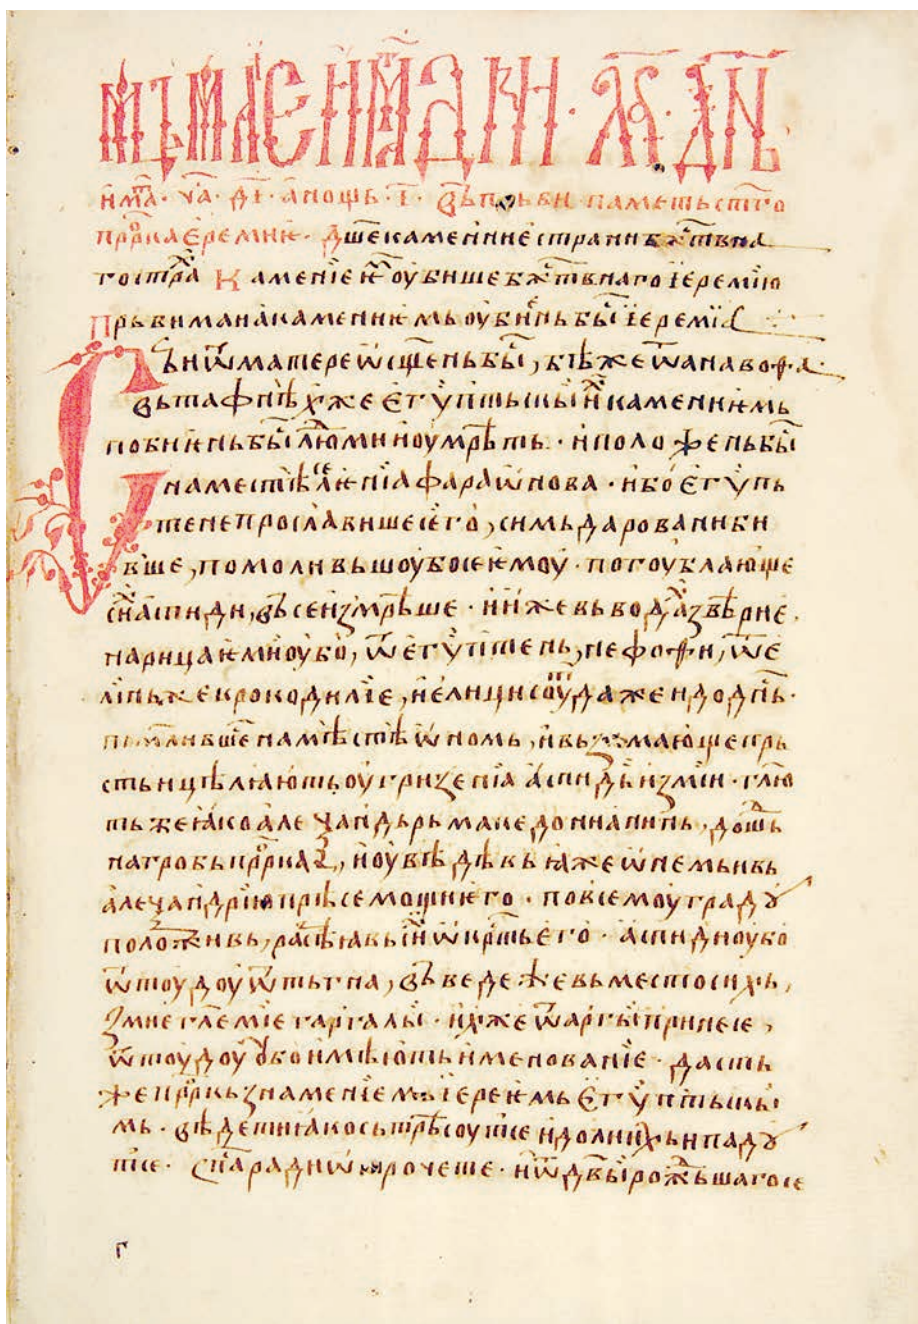 мц҃ь маіе има дни · ла҃ · дн҃ь
има · ча · ді · а нощь · і · вь прьви паметь ст҃го
прⷪ҇рка еремиѥ · дше каменине страни бж҃тьвна
го стра К амениіе оубише бж҃тьвнаго іеремію
Прьви ман а каменикмь оубинь бы іеремїа
Сьи ѿ матере ѡсщ҃ень бы, бѣже ѿ анавоѳа
вь тафнѣх же егѵптьскы каменикмь
побикнь бы людми и оумрѣть · и положень бы
на местѣ лѥнїа фараѡнова · ибо егѵпь
тене прославише его, симь даровани би
вше, помолившоу бо се ѥмоу · погоублающе
с аспиди, вьсе измрѣше · и иже вь водах звѣрие ·
нарицаѥми оубо, ѿ егѵптень, нефоѳи, ѿ е
линь же крокодиліе, и елици соуть даже и до дн҃ь ·
помлившесе на мѣстѣ ѡномь, и вьзмающе прь
сть исцѣлають оугризенїа аспидь и змїи · глю
ть же ꙗко алеѯандьрь македонианинь, дошь
на гробь прⷪ҇рка, и оувѣдѣвь ꙗже ѡ немь и вь
алеѯандрїю прѣсе мощи ѥго · по всемоу градꙋ
положивь, расѣꙗвь ѡкрьсть его · аспиди оубо
ѿтоудоу ѿтьгна, вьведе же вь место сихь,
змие глемїе гаргалы · ихже ѿ аргы принесе,
ѿтоудоу ꙋбо имѣють именованїе · дасть
же прⷪ҇ркь знаменїемь іерѥмь егѵптьскы
мь · вѣдети ꙗко сьтрѣсоутсе идоли ихь и падꙋ
тсе · сп҃са ради ѿрочеше · и ѿ дв҃ы рождьшагосе
г